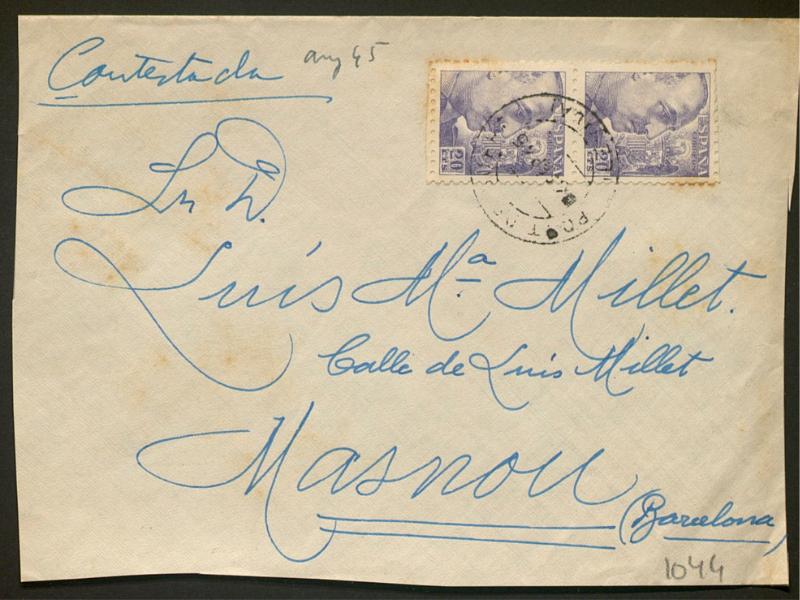 Contestada
any 45
ESPAÑA
20 CTS
ESPAÑA
20 CTS
Sr D.
Luís Mª Millet.
Calle de Luís Millet
Masnou
(Barcelona)
1044